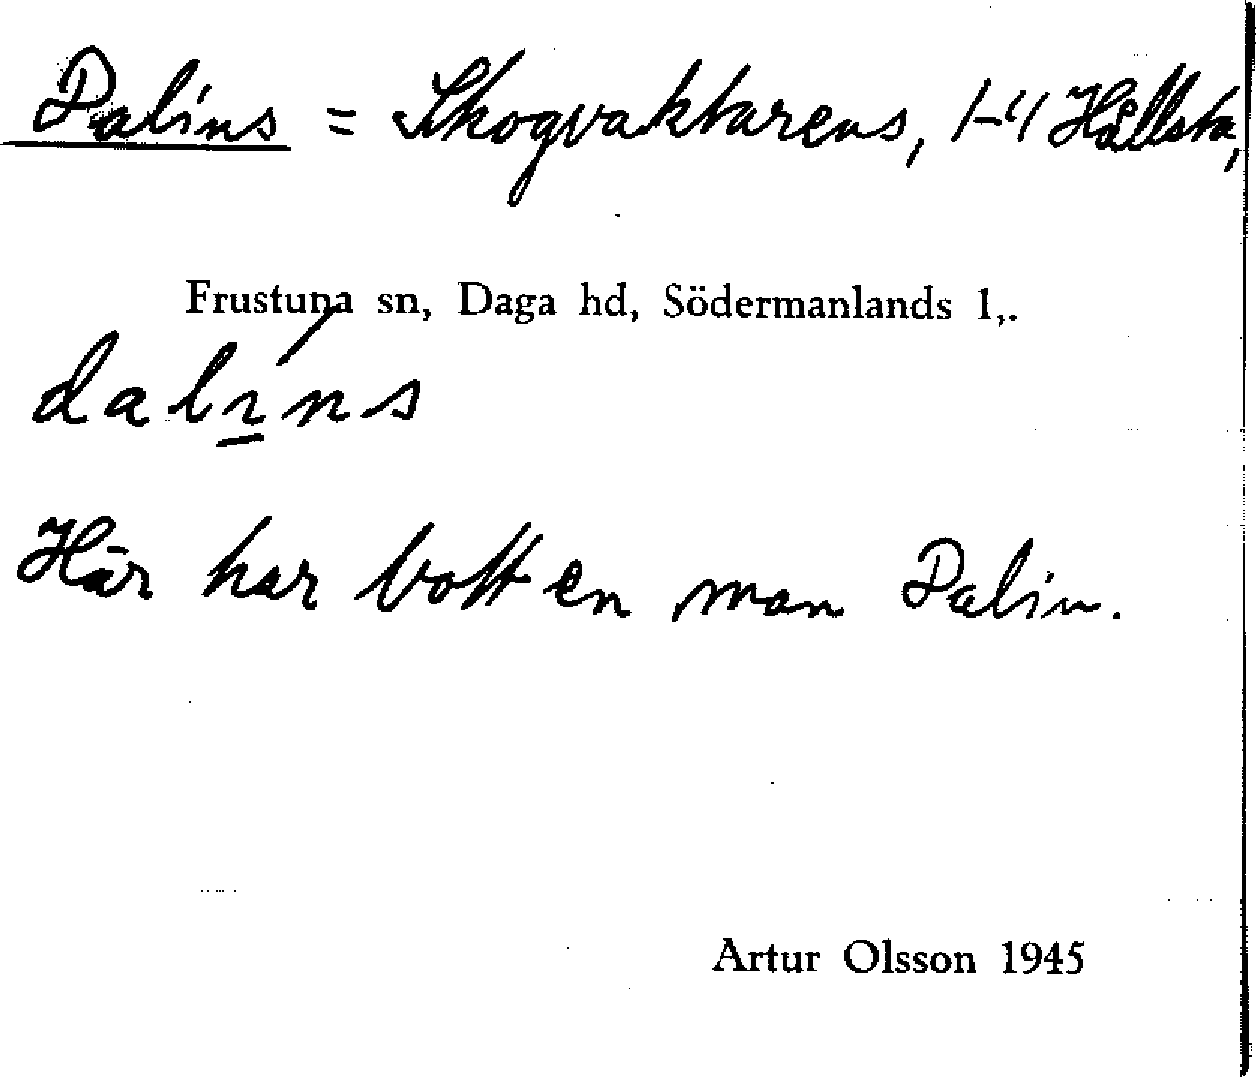 Dalins = Skogvaktarens, 1-4 Hållsta,
Frustuna sn, Daga hd, Södermanlands l,.
dalins
Här har bott en man Dalin.
Artur Olsson 1945